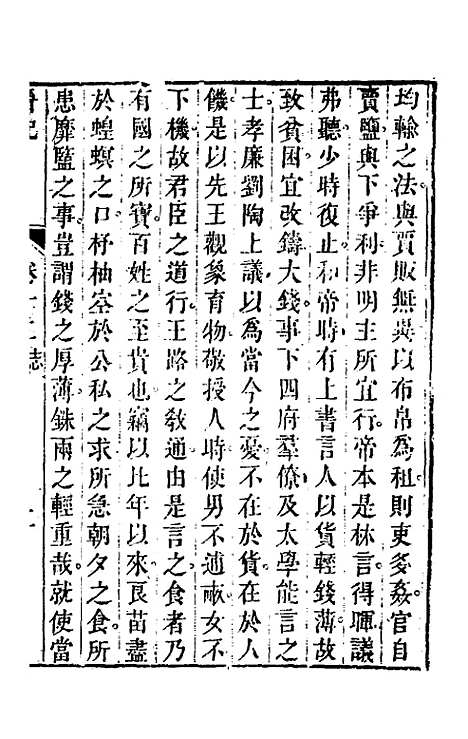 均輸之法與賈販無異以布帛為租則吏多姦官自
賣鹽與下爭利非明主所宜行帝本是林言得暉議
弗聽少時復止和帝時有上書言人以貨輕錢薄故
致貧困宜改鑄大錢事下四府羣僚及太學能言之
士孝廉劉陶上議以為當今之憂不在於貨在於人
饑是以先王觀象育物敬授人時使男不逋畝女不
下機故君臣之道行王路之敎通由是言之食者乃
有國之所寶百姓之至貴也竊以比年以來良苗盡
於蝗螟之口杼柚空於公私之求所急朝夕之食所
患靡盬之事豈謂錢之厚薄銖兩之輕重哉就使當
晉記 卷十二志